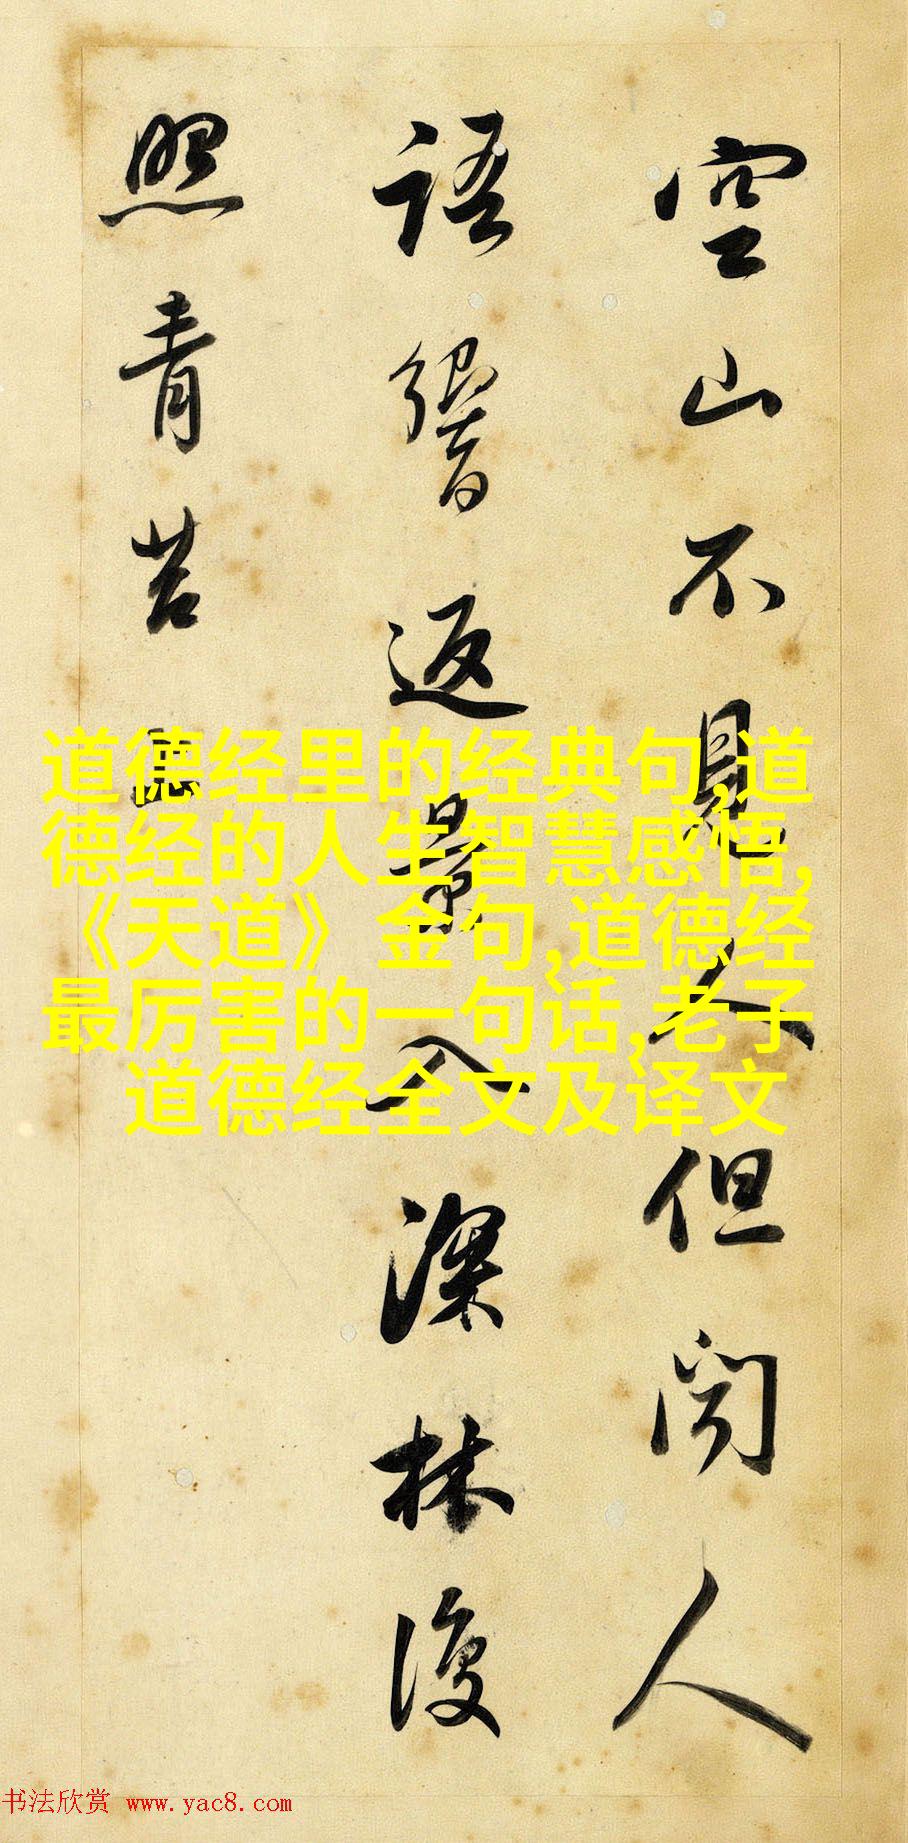 空山不見人但闻人
語響返景入深林復
照青苔上
道德经里的经典句,道
德经的人生智慧感悟,
《天道》 金句,道德经
最厉害的一句话,老子
道德经全文及译文
书法欣赏 www.yac8.com